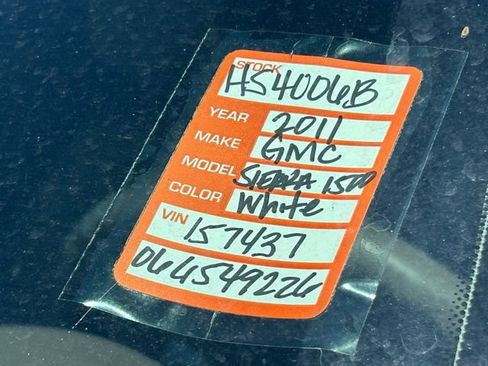 STOCK
HS4006B
YEAR 2011
MAKE GMC
MODEL SIERRA 1500
COLOR White
VIN
157437
064549226